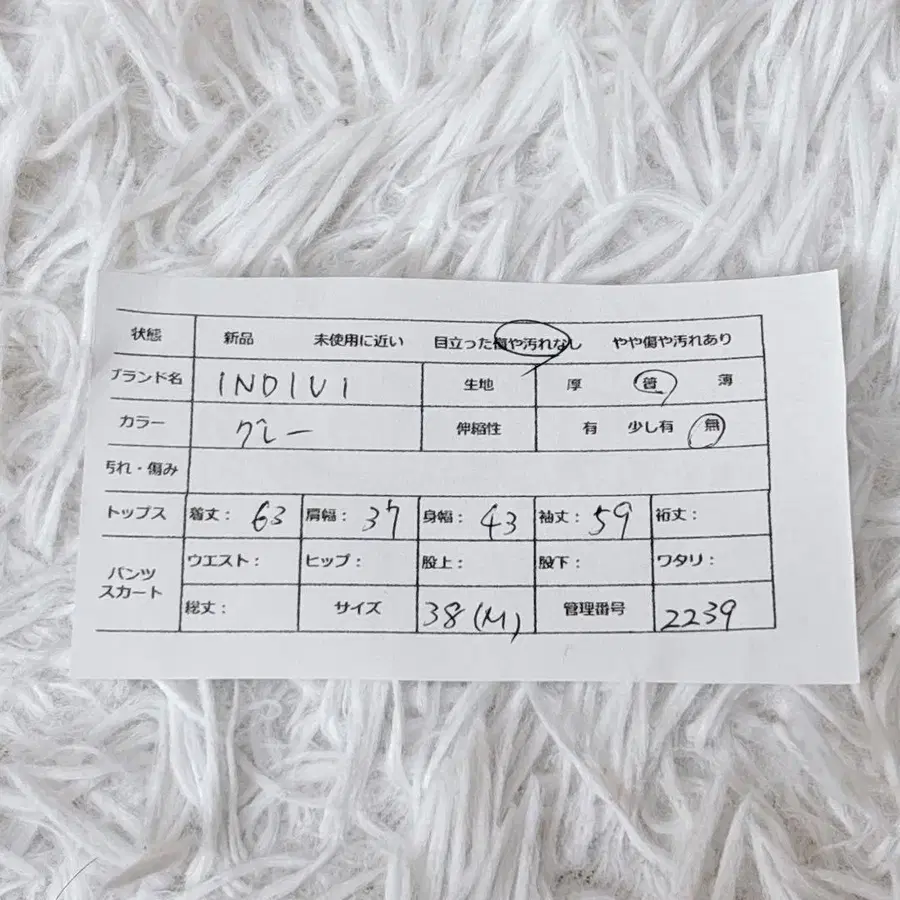 状態 新品 未使用に近い 目立った傷や汚れなし やや傷や汚れあり
ブランド名 INDIVI 生地 厚 普 薄
カラー グレー 伸縮性 有 少し有 無
汚れ・傷み
トップス 着丈: 63 肩幅: 37 身幅: 43 袖丈: 59 裄丈:
パンツ ウエスト: ヒップ: 股上: 股下: ワタリ:
スカート 総丈: サイズ 38(M) 管理番号 2239